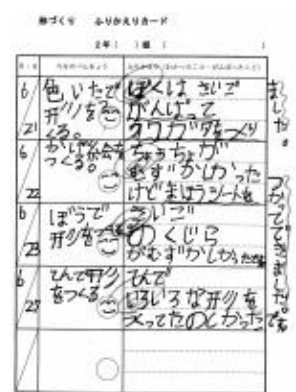 形づくり ふりかえりカード
2年( )組( )
月/日
6/21
色いたで
形をつ
くる。
ぼくは さいご
がんばって
クワガタをつくり
ました。
6/22
つくる。
ちょうちょが
むずかしかった
けど まほうシートを
つかってできました。
6/23
ぼうで
形をつくる
さいご
のくじら
がむずかしかったです
6/25
てんで形
をつくる
てんで
いろいろな形を
つくってたのしかったです